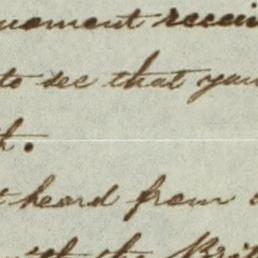 moment recei
to see that you
h.
t heard from
with the Brit